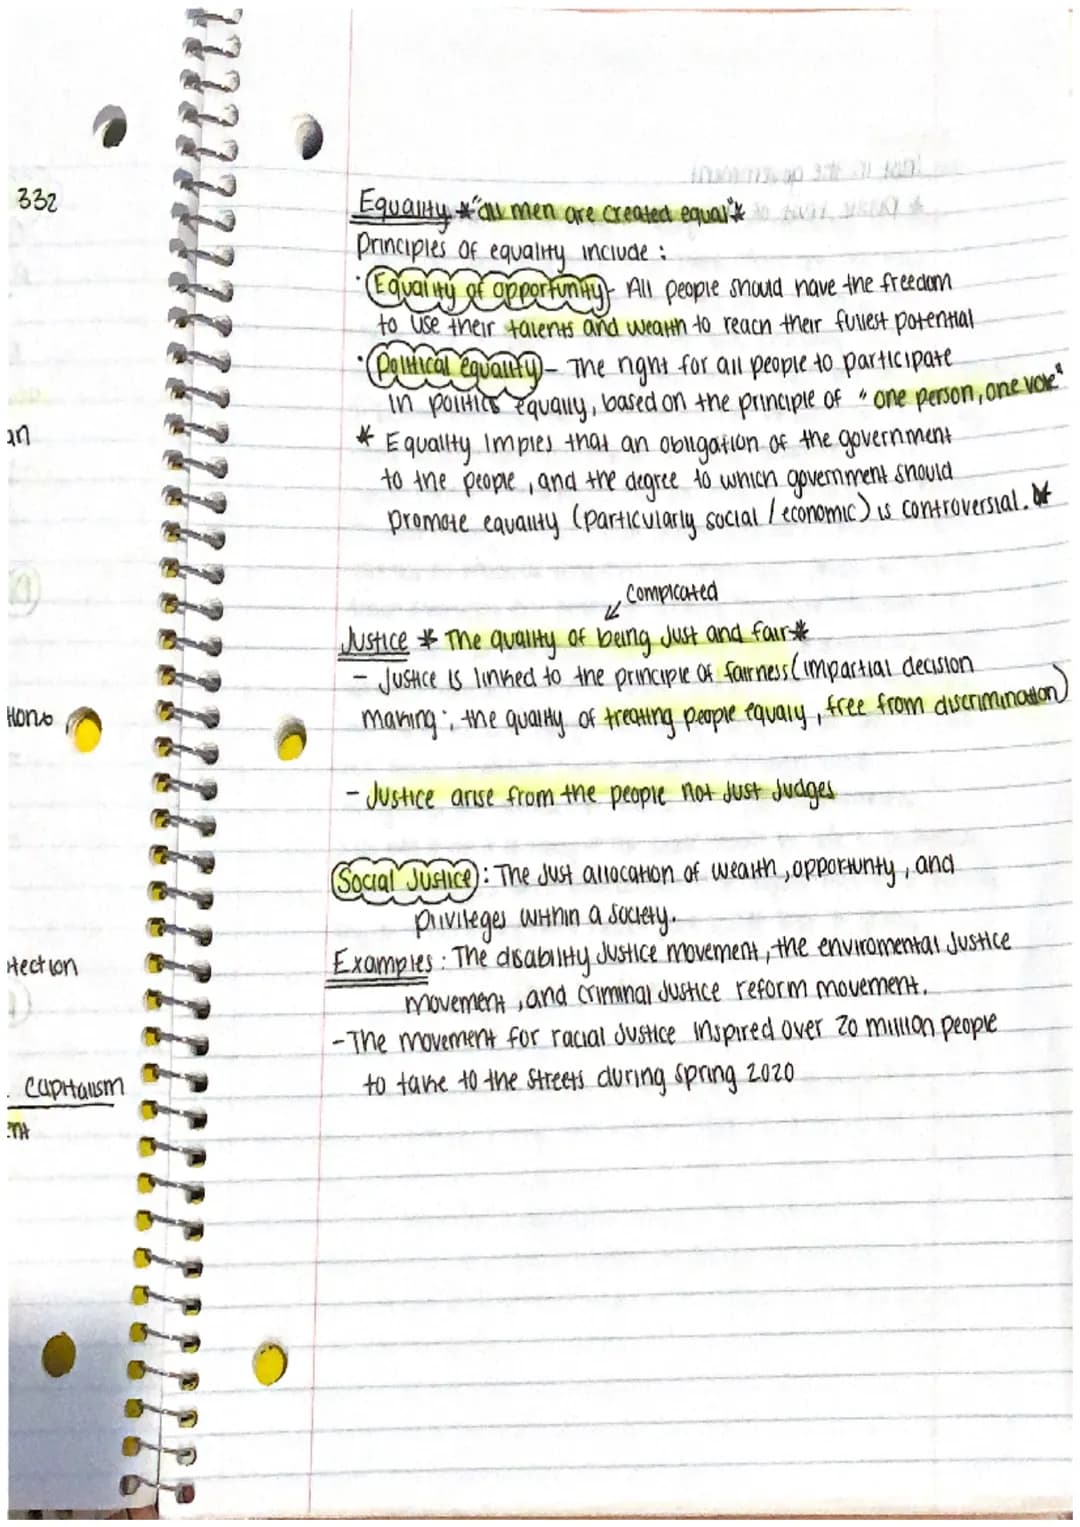 332
an
tions
tection
Capitalism
Equality *"all men are created equal"*
Principles of equality include :
· Equality of opportunity - All people should have the freedom
to use their talents and wealth to reach their fullest potential
· Political equality - The right for all people to participate
in politics equally, based on the principle of "one person, one vote"
* Equality Implies that an obligation of the government
to the people , and the degree to which government should
promote equality (particularly social / economic) is controversial. *
Complicated
Justice * The quality of being Just and fair *
- Justice is linked to the principle of fairness (impartial decision
making ; the quality of treating people equaly , free from discrimination)
- Justice arise from the people not Just Judges
Social Justice : The Just allocation of wealth , opportunty , and
privileges within a society.
Examples : The disability Justice movement , the enviromental Justice
movement , and criminal Justice reform movement.
- The movement for racial Justice inspired over 20 million people
to take to the streets during spring 2020